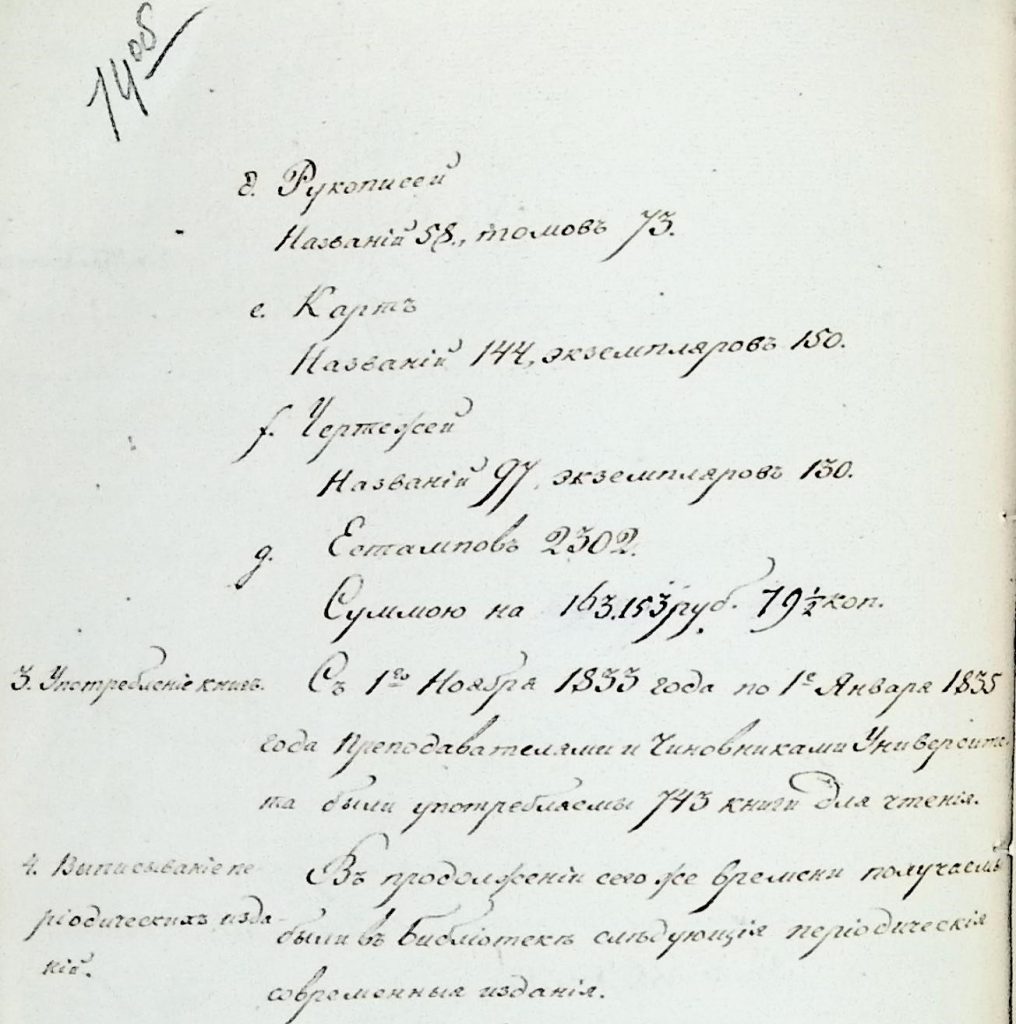 74 об
д. Рукописей
Названій 58., томовъ 73.
е. Картъ
Названій 144, экземпляровъ 150.
f. Чертежей
Названій 97, экземпляровъ 130.
g. Естамповъ 2302.
Суммою на 163.153 руб. 79 1/2 коп.
3. Употребленіе книгъ. Съ 1го Ноября 1833 года по 1е Января 1835
года Преподавателями и Чиновниками Университе-
та были употребляемы 743 книги для чтенія.
4. Выписываніе пе- Въ продолженіи сего же времени получаемы
ріодическихъ изда- были въ Библіотекѣ слѣдующія періодическія
ній. современныя изданія.